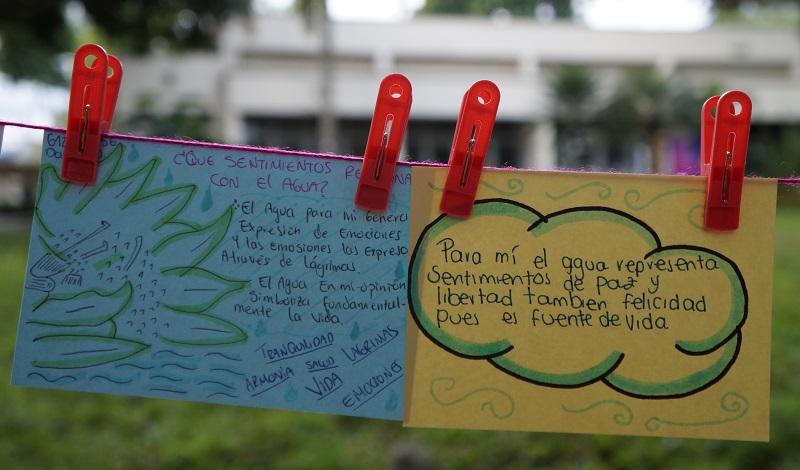 ¿QUE SENTIMIENTOS
CON EL AGUA?
El Agua para mi Genera
Expresión de Emociones
y las emosiones las Expreso
Através de lágrimas.
El Agua En mi opinión
Simboliza fundamental-
mente la vida.
TRANQUILIDAD
LÁGRIMAS
SALUD
ARMONÍA
VIDA
EMOCIONES
Para mí el agua representa
Sentimientos de Paz y
libertad tambien felicidad
pues es fuente de vida